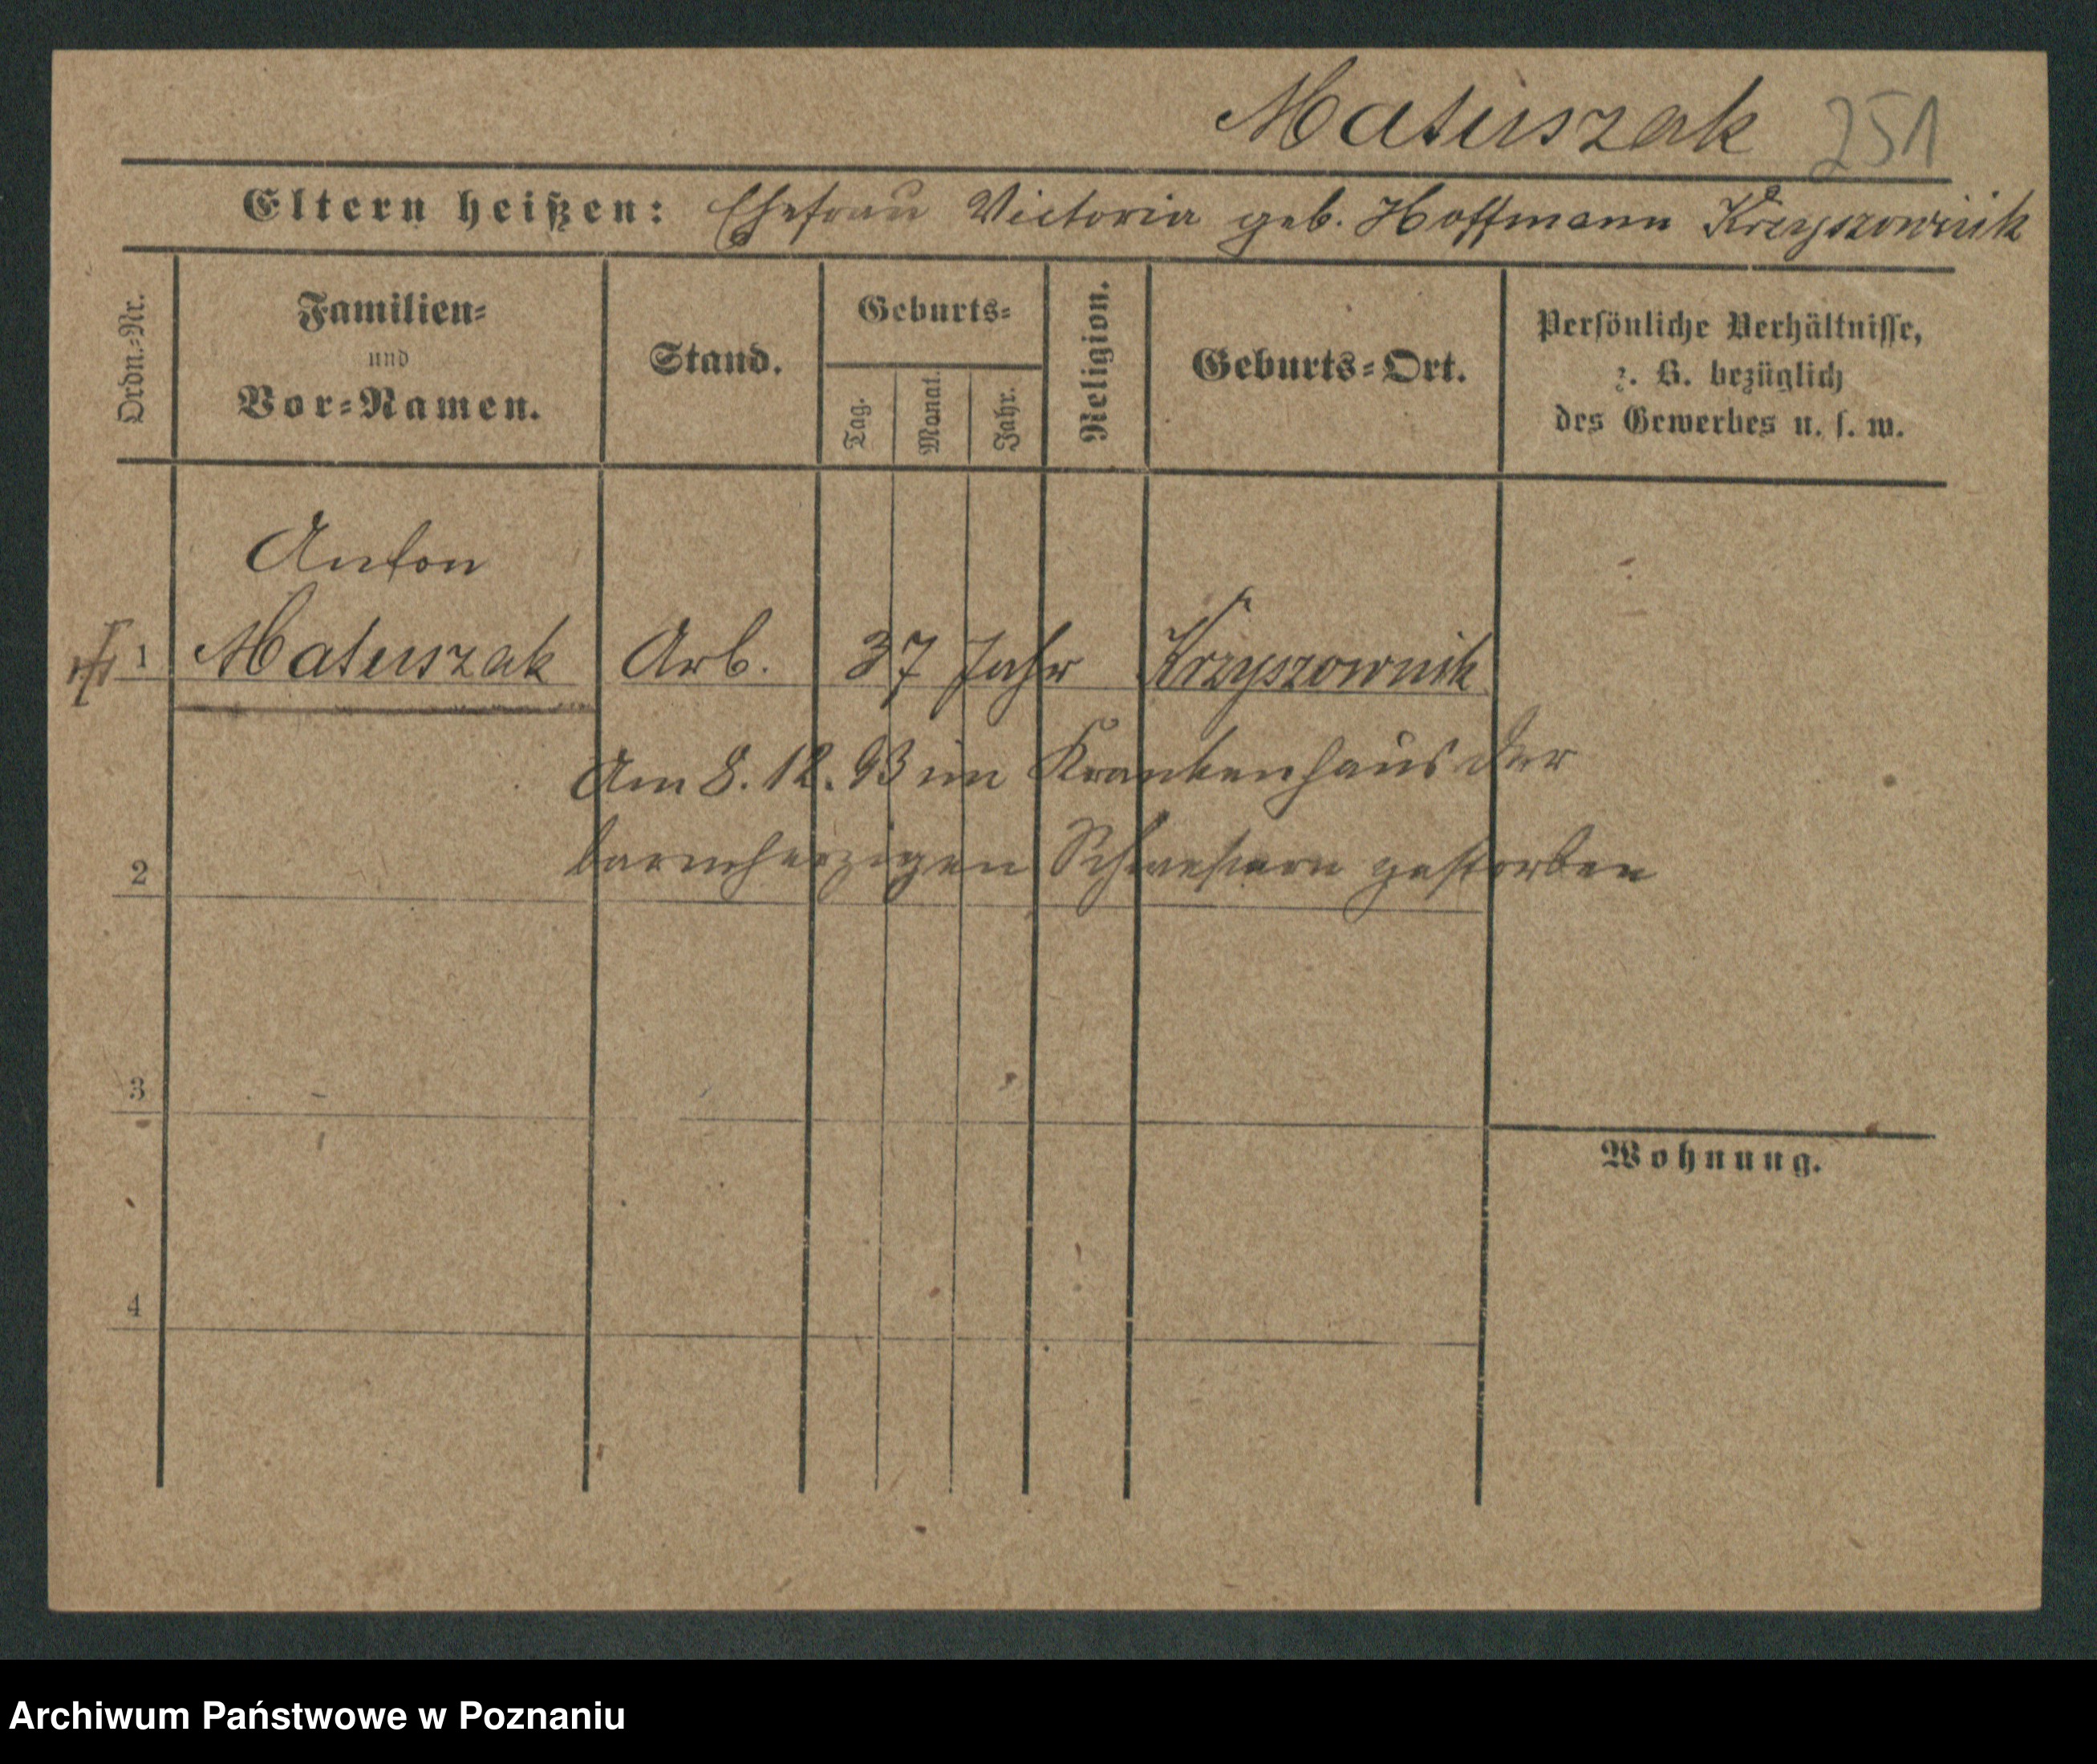 Matuszak 251
Eltern heißen: Ehefrau Victoria geb. Hoffmann Krzyszownik
Ordn.-Nr.
Familien-
und
Vor-Namen.
Stand.
Geburts-
Tag.
Monat.
Jahr.
Religion.
Geburts-Ort.
Persönliche Verhältnisse,
z. B. bezüglich
des Gewerbes u. s. w.
Anton
1 Matuszak Arb. 37 Jahr Krzyszownik
Am 8. 12. 93 im Krankenhaus der
2 barmherzigen Schwestern gestorben
3
Wohnung.
4
Archiwum Państwowe w Poznaniu